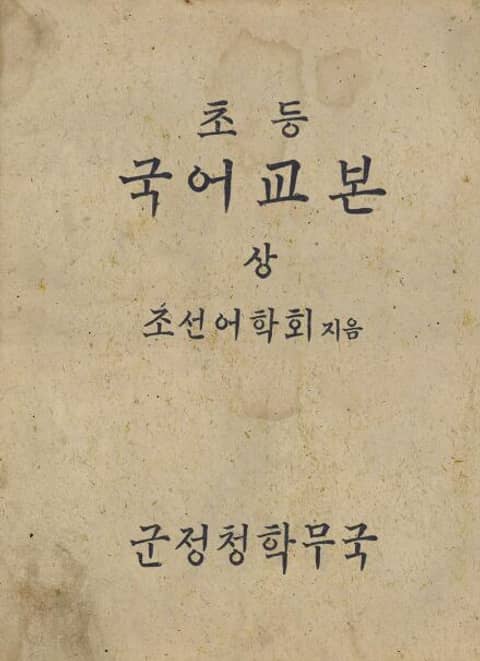 초 등
국어교본
상
조선어학회 지음
군정청학무국